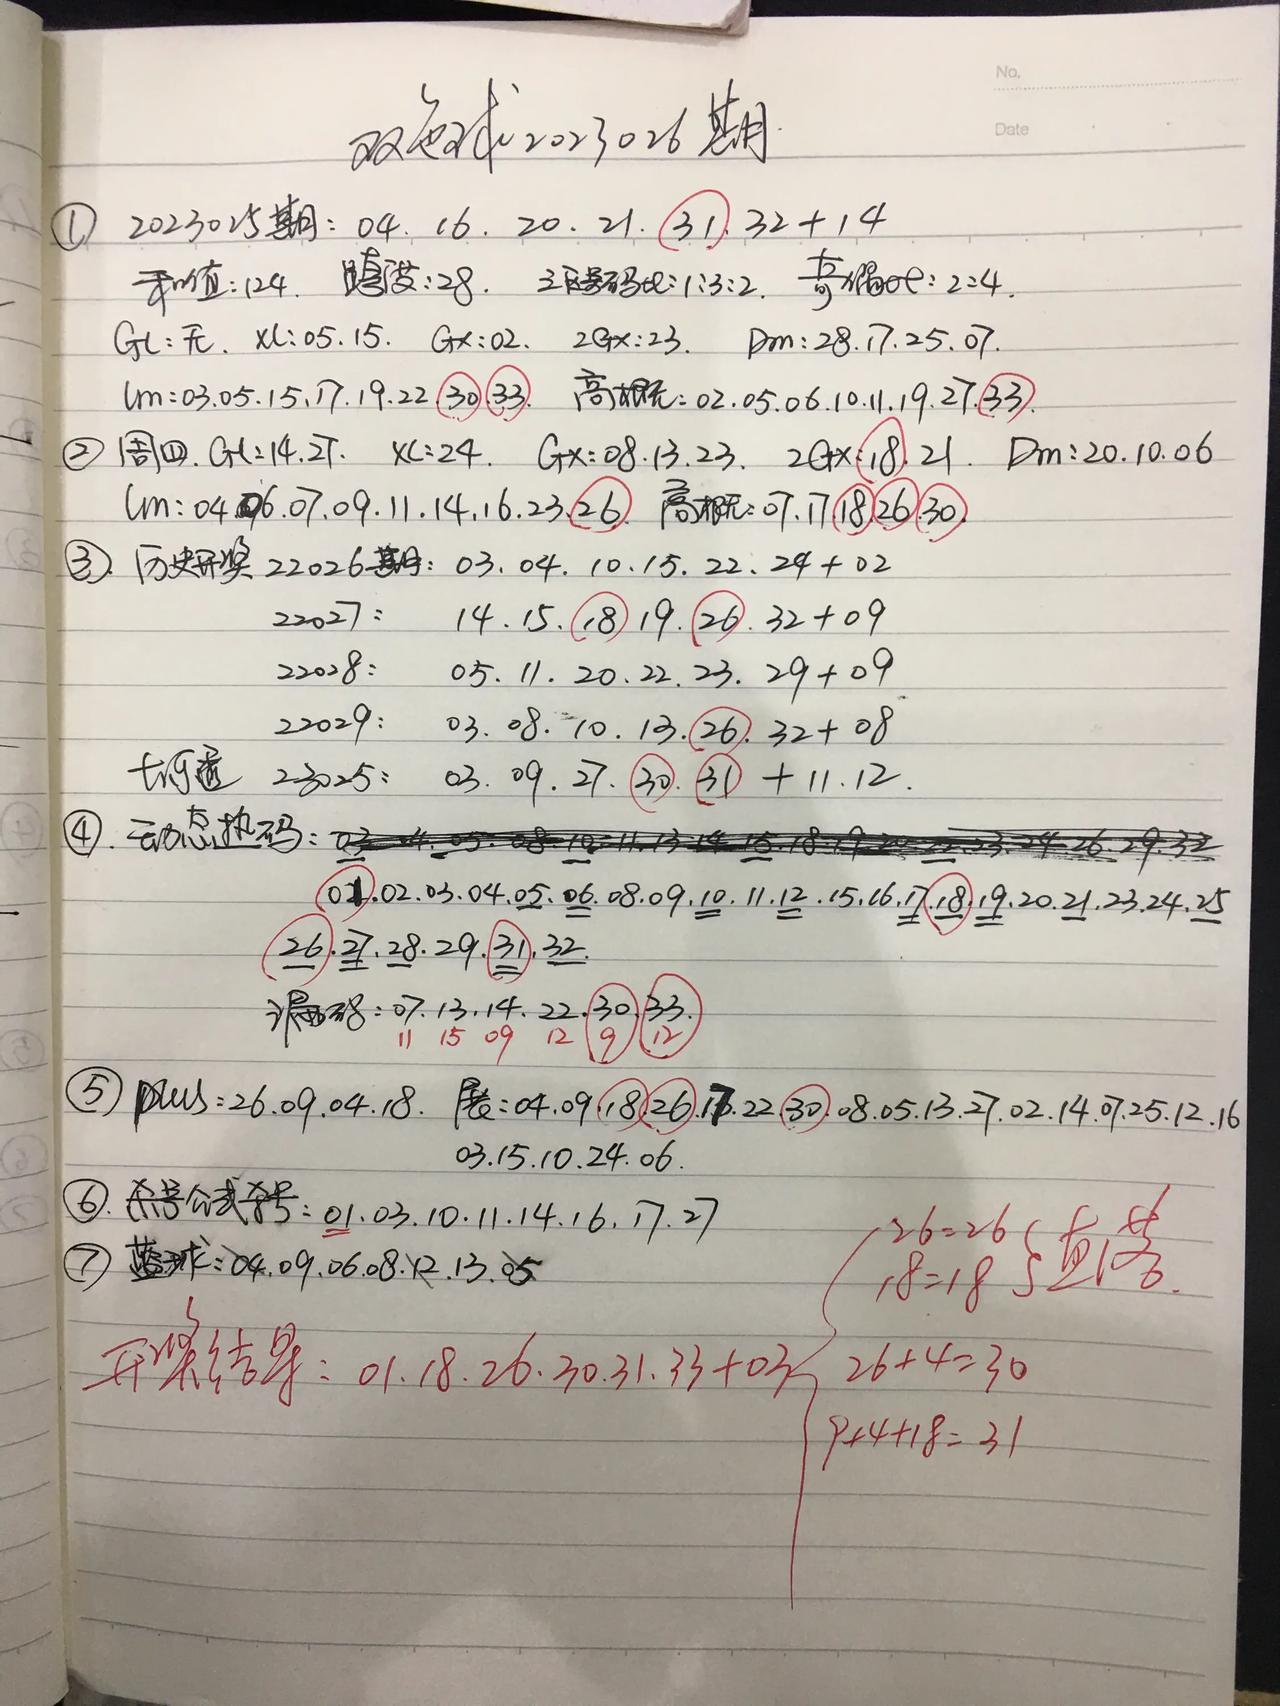 No.
Date
双色球2023026期
① 2023025期: 04. 16. 20. 21. 31. 32+14
和值:124. 跨度:28. 三区号码比:1:3:2. 奇偶比:2:4.
GL:无. XL:05.15. Gx:02. 2Gx:23. Dm:28.17.25.07.
Lm:03.05.15.17.19.22.30.33. 高概无:02.05.06.10.11.19.27.33.
② 周四. GL:14.27. XL:24. Gx:08.13.23. 2Gx:18.21. Dm:20.10.06
Lm:04.06.07.09.11.14.16.23.26. 高概无:07.17.18.26.30.
③. 历史开奖 22026期: 03.04.10.15.22.24+02
22027: 14.15.18.19.26.32+09
22028: 05.11.20.22.23.29+09
22029: 03.08.10.13.26.32+08
23025: 03.09.27.30.31+11.12.
④. 动态热码: 03 04 05 08 10 11 13 14 15 18 19 22 23 24 26 29 32
01.02.03.04.05.06.08.09.10.11.12.15.16.17.18.19.20.21.23.24.25
26.27.28.29.31.32.
漏码:07.13.14.22.30.33.
11 15 09 12 9 12
⑤ plus:26.09.04.18. 展:04.09.18.26.17.22.30.08.05.13.27.02.14.07.25.12.16
03.15.10.24.06.
⑥. 杀号公式杀号:01.03.10.11.14.16.17.27
⑦ 蓝球:04.09.06.08.12.13.05
26=26
18=18
开奖结果:01.18.26.30.31.33+03 26+4=30
9+4+18=31